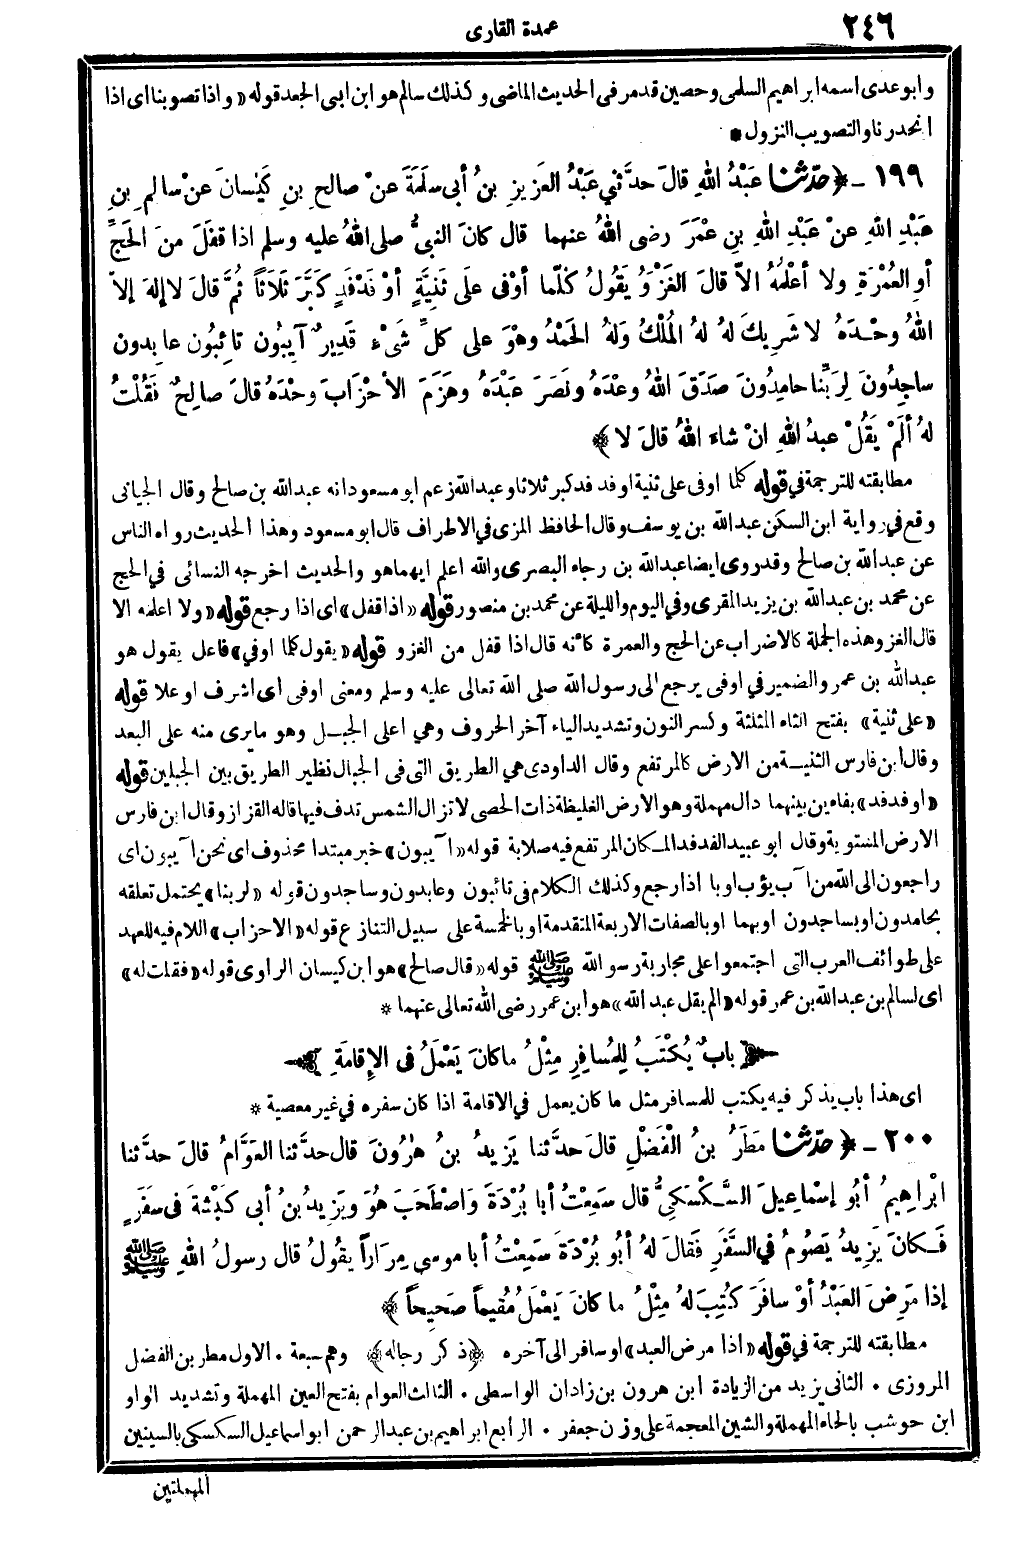 ٢٤٦
عمدة القارى
وابوعدى اسمه ابراهيم السلمى وحصين قد مر فى الحديث الماضى وكذلك سالم هو ابن ابى الجعد قوله «واذا تصوبنا اى اذا
انحدرنا والتصويب النزول *
١٩٩ ـ ﴿ حدّثنا عَبْدُ اللهِ قالَ حدَّثني عَبْدُ العَزِيزِ بنُ أبى سلَمَةَ عنْ صالحِ بنِ كَيْسانَ عنْ سالِمِ بنِ
عَبْدِ اللهِ عنْ عَبْدِ اللهِ بنِ عُمَرَ رضى اللهُ عنهما قال كانَ النبىُّ صلى اللهُ عليه وسلم اذا قفَلَ منَ الحَجِّ
أوِ العُمْرَةِ ولا أعْلَمُهُ الاّ قالَ الغَزْوِ يَقُولُ كُلّما أوْفى علَى ثَنِيَّةٍ أوْ فَدْفَدٍ كَبَّرَ ثَلاَثاً ثُمَّ قالَ لا إلهَ إلاّ
اللهُ وحْدَهُ لا شَرِيكَ لهُ لهُ المُلْكُ ولهُ الحَمْدُ وهْوَ على كلِّ شَىْءٍ قَدِيرٌ آيِبُونَ تائِبُون عابِدون
ساجِدُونَ لِرَبِّنا حامِدُونَ صَدَقَ اللهُ وعْدَهُ ونَصَرَ عَبْدَهُ وهَزَمَ الأحْزَابَ وحْدَهُ قالَ صالِحٌ فَقُلْتُ
لهُ ألَمْ يَقُلْ عبدُ اللهِ انْ شاءَ اللهُ قالَ لا ﴾
مطابقته للترجمة فى قوله كلما اوفى على ثنية او فدفد كبر ثلاثا وعبد الله زعم ابو مسعود انه عبد الله بن صالح وقال الجيانى
وقع فى رواية ابن السكن عبد الله بن يوسف وقال الحافظ المزى فى الاطراف قال ابو مسعود وهذا الحديث رواه الناس
عن عبد الله بن صالح وقد روى ايضا عبد الله بن رجاء البصرى والله اعلم ايهما هو والحديث اخرجه النسائى فى الحج
عن محمد بن عبد الله بن يزيد المقرى وفى اليوم والليلة عن محمد بن منصور قوله «اذا قفل» اى اذا رجع قوله «ولا اعلمه الا
قال الغزو وهذه الجملة كالاضراب عن الحج والعمرة كأنه قال اذا قفل من الغزو قوله «يقول كلما اوفى» فاعل يقول هو
عبد الله بن عمر والضمير فى اوفى يرجع الى رسول الله صلى الله تعالى عليه وسلم ومعنى اوفى اى اشرف او علا قوله
«على ثنية» بفتح الثاء المثلثة وكسر النون وتشديد الياء آخر الحروف وهى اعلى الجبل وهو ما يرى منه على البعد
وقال ابن فارس الثنية من الارض كالمرتفع وقال الداودى هى الطريق التى فى الجبال نظير الطريق بين الجبلين قوله
«او فدفد» بفاءين بينهما دال مهملة وهو الارض الغليظة ذات الحصى لا تزال الشمس تدف فيها قاله القزاز وقال ابن فارس
الارض المستوية وقال ابو عبيد الفدفد المكان المرتفع فيه صلابة قوله «آيبون» خبر مبتدا محذوف اى نحن آيبون اى
راجعون الى الله من آب يؤب اوبا اذا رجع وكذلك الكلام فى تائبون وعابدون وساجدون قوله «لربنا» يحتمل تعلقه
بحامدون او بساجدون او بهما او بالصفات الاربعة المتقدمة او بالخمسة على سبيل التنازع قوله «الاحزاب» اللام فيه للعهد
على طوائف العرب التى اجتمعوا على محاربة رسو الله ﷺ قوله «قال صالح» هو ابن كيسان الراوى قوله «فقلت له»
اى لسالم بن عبد الله بن عمر قوله «الم يقل عبد الله» هو ابن عمر رضى الله تعالى عنهما *
﴿ بابٌ يُكْتَبُ لِلمُسافِرِ مِثْلُ ما كانَ يَعْمَلُ فى الإِقامَةِ ﴾
اى هذا باب يذكر فيه يكتب للمسافر مثل ما كان يعمل فى الاقامة اذا كان سفره فى غير معصية *
٢٠٠ ـ ﴿ حدّثنا مَطَرُ بنُ الْفَضْلِ قالَ حدَّثنا يَزِيدُ بنُ هٰرُونَ قال حدَّثنا العَوَّامُ قالَ حدَّثنا
ابْراهِيمُ أبُو إسْماعِيلَ السَّكْسَكِىُّ قال سَمِعْتُ أبا بُرْدَةَ وَاصْطَحَبَ هُوَ ويَزِيدُ بنُ أبى كَبْشَةَ فى سَفَرٍ
فَكانَ يَزِيدُ يَصُومُ فى السَّفَرِ فَقالَ لهُ أبُو بُرْدَةَ سَمِعْتُ أبا موسى مِرَاراً يقُولُ قال رسولُ اللهِ ﷺ
إذا مَرِضَ العَبْدُ أوْ سافَرَ كُتِبَ لهُ مِثْلُ ما كانَ يَعْمَلُ مُقِيماً صَحِيحاً ﴾
مطابقته للترجمة فى قوله «اذا مرض العبد» او سافر الى آخره ﴿ذكر رجاله﴾ وهم سبعة . الاول مطر بن الفضل
المروزى . الثانى يزيد من الزيادة ابن هرون بن زادان الواسطى . الثالث العوام بفتح العين المهملة وتشديد الواو
ابن حوشب بالحاء المهملة والشين المعجمة على وزن جعفر . الرابع ابراهيم بن عبد الرحمن ابو اسماعيل السكسكى بالسينين
المهملتين